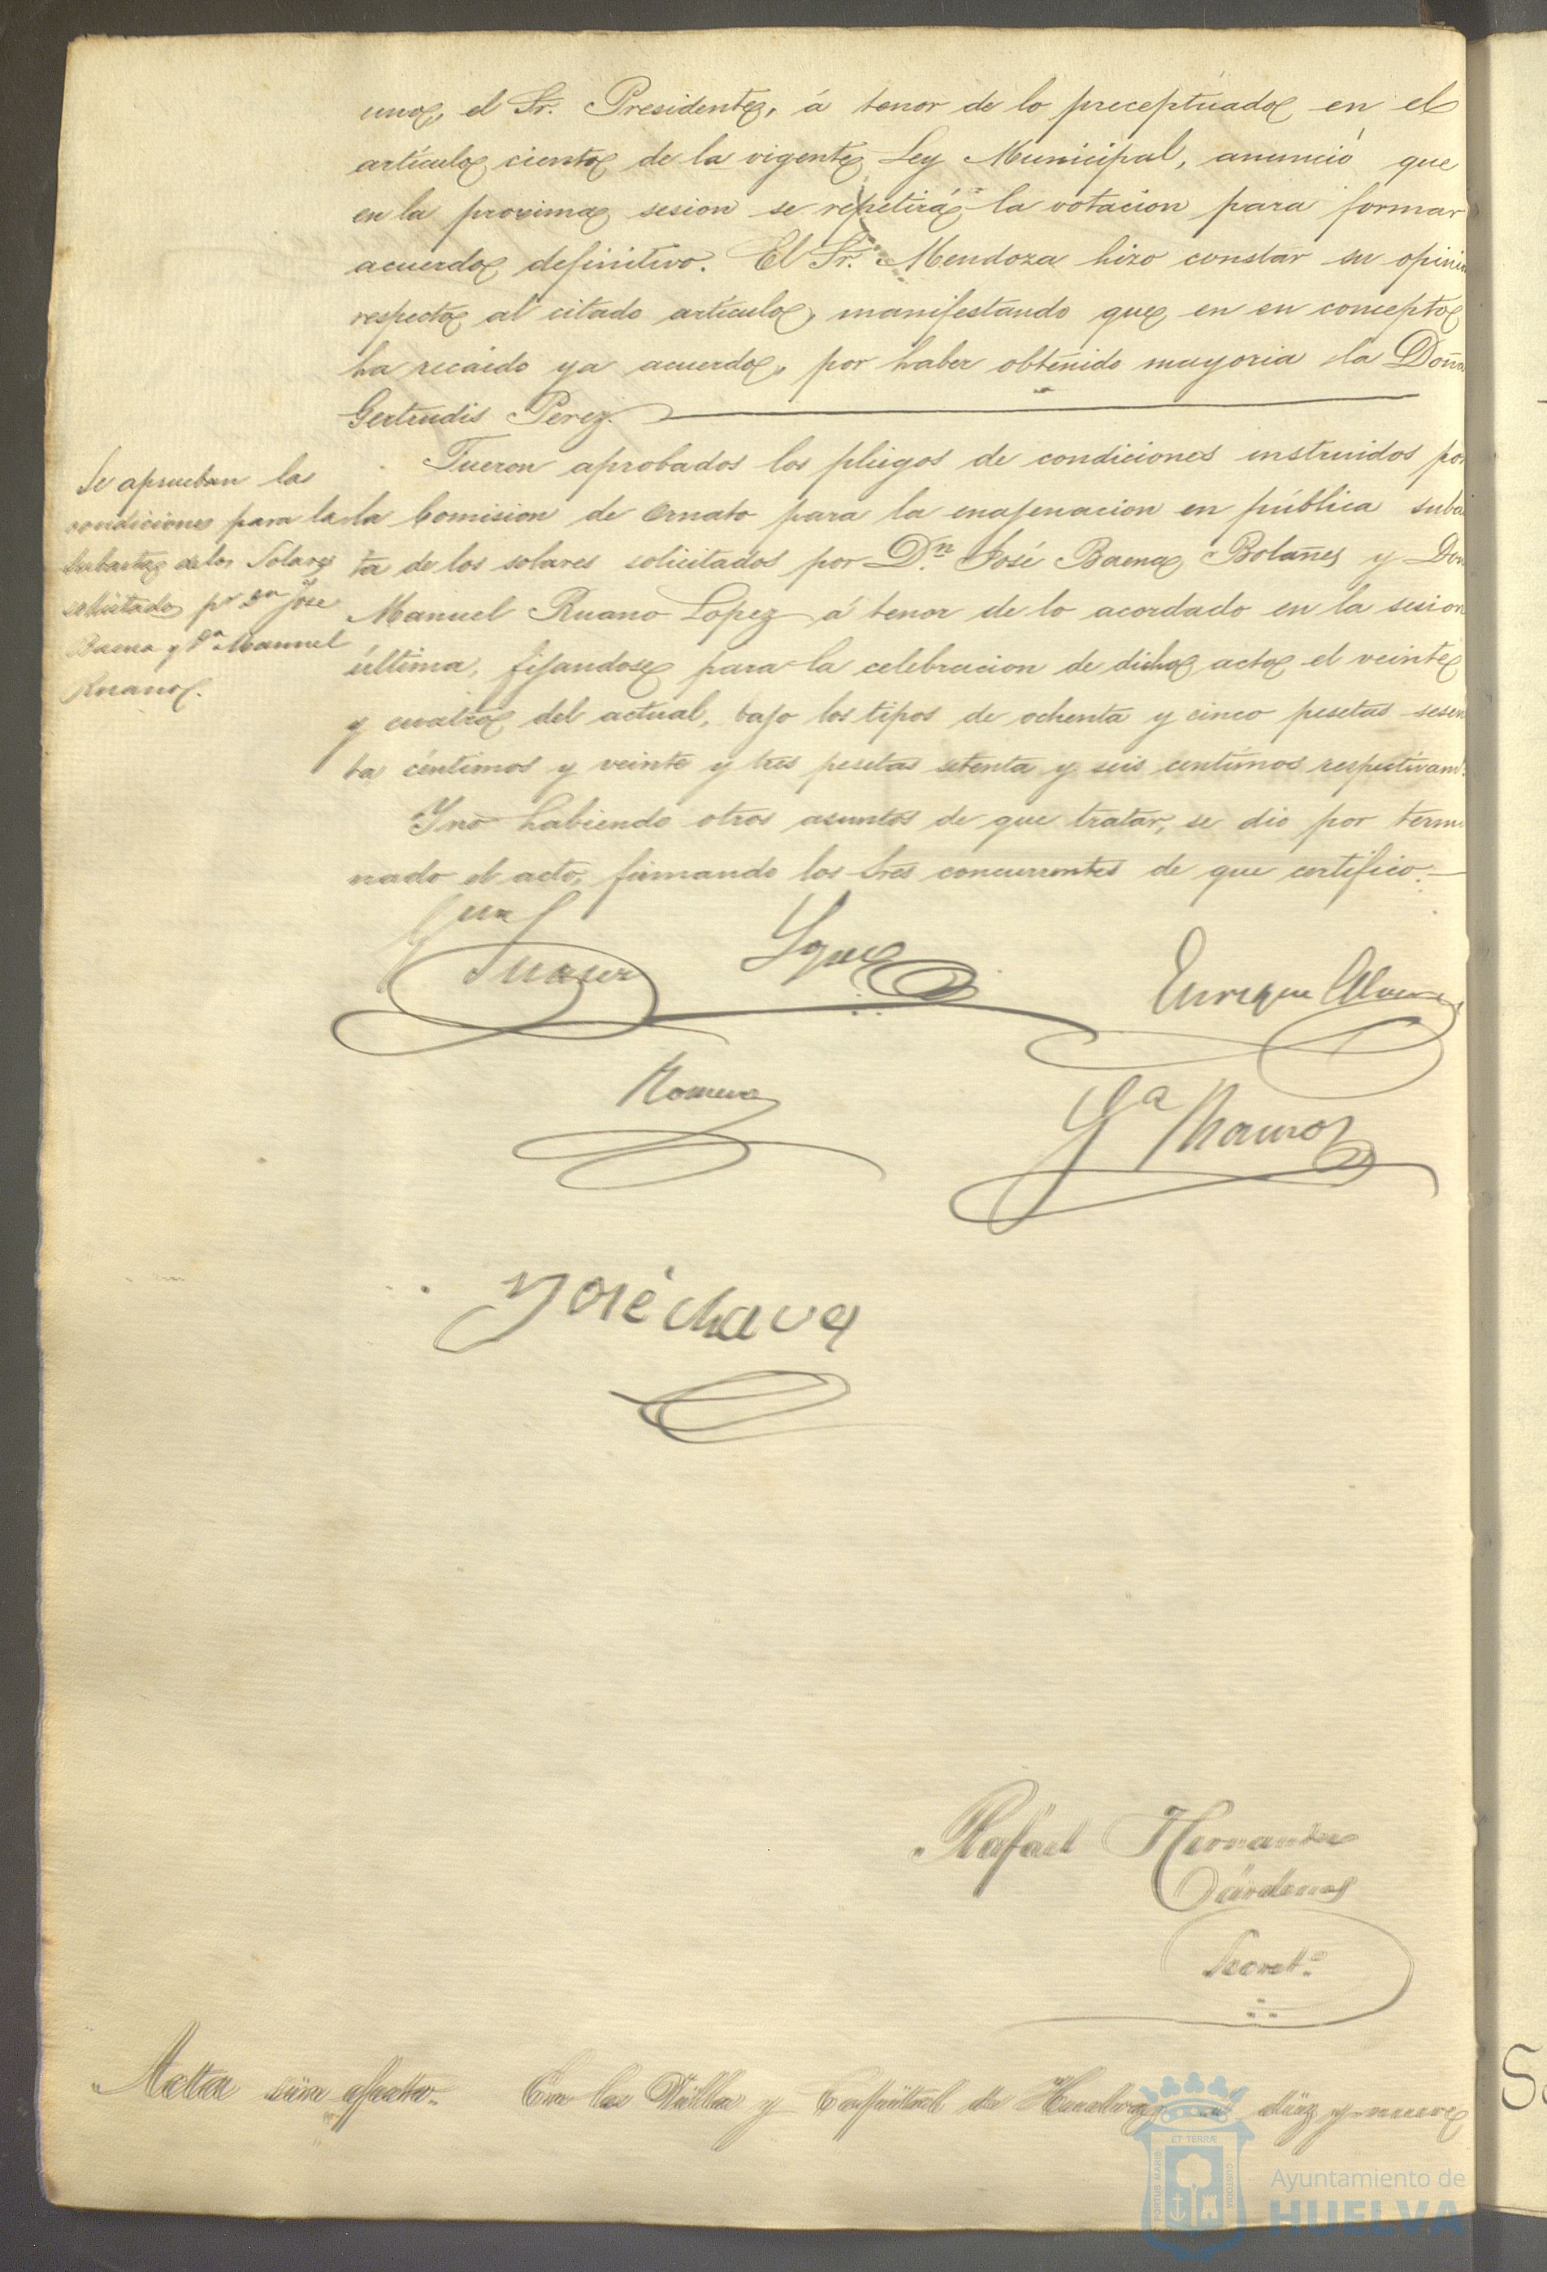 uno, el Sr. Presidente, á tenor de lo preceptuado en el
artículo ciento de la vigente Ley Municipal, anunció que
en la proxima sesion se repetirá la votacion para formar
acuerdo definitivo. El Sr. Mendoza hizo constar su opinio
respecto al citado artículo, manifestando que en en concepto
ha recaido ya acuerdo, por haber obtenido mayoria la Doña
Gertrudis Perez.
Se aprueban las
condiciones para la
subasta de los Solares
solicitados pr Dn José
Baena y Dn Manuel
Ruano.
Fueron aprobados los pliegos de condiciones instruidos por
la Comision de Ornato para la enajenacion en pública subas
ta de los solares solicitados por Dn. José Baena Bolañes y Don
Manuel Ruano Lopez á tenor de lo acordado en la sesion
última, fijandose para la celebracion de dicho acto el veinte
y cuatro del actual, bajo los tipos de ochenta y cinco pesetas sesen
ta céntimos y veinte y tres pesetas setenta y seis centimos respectivamte.
Y no habiendo otros asuntos de que tratar, se dió por termi
nado el acto, firmando los Sres concurrentes de que certifico.
Suarez
Lopez
Enrique Alvarez
Romero
Ga Ramos
José Chaves
Rafael Hernandez
Cárdenas
Secrett.o
Acta sin efecto. En la Villa y Capital de Huelva, á diez y nueve
ET TERRÆ
PORTUS MARIS
CUSTODIA
Ayuntamiento de
HUELVA